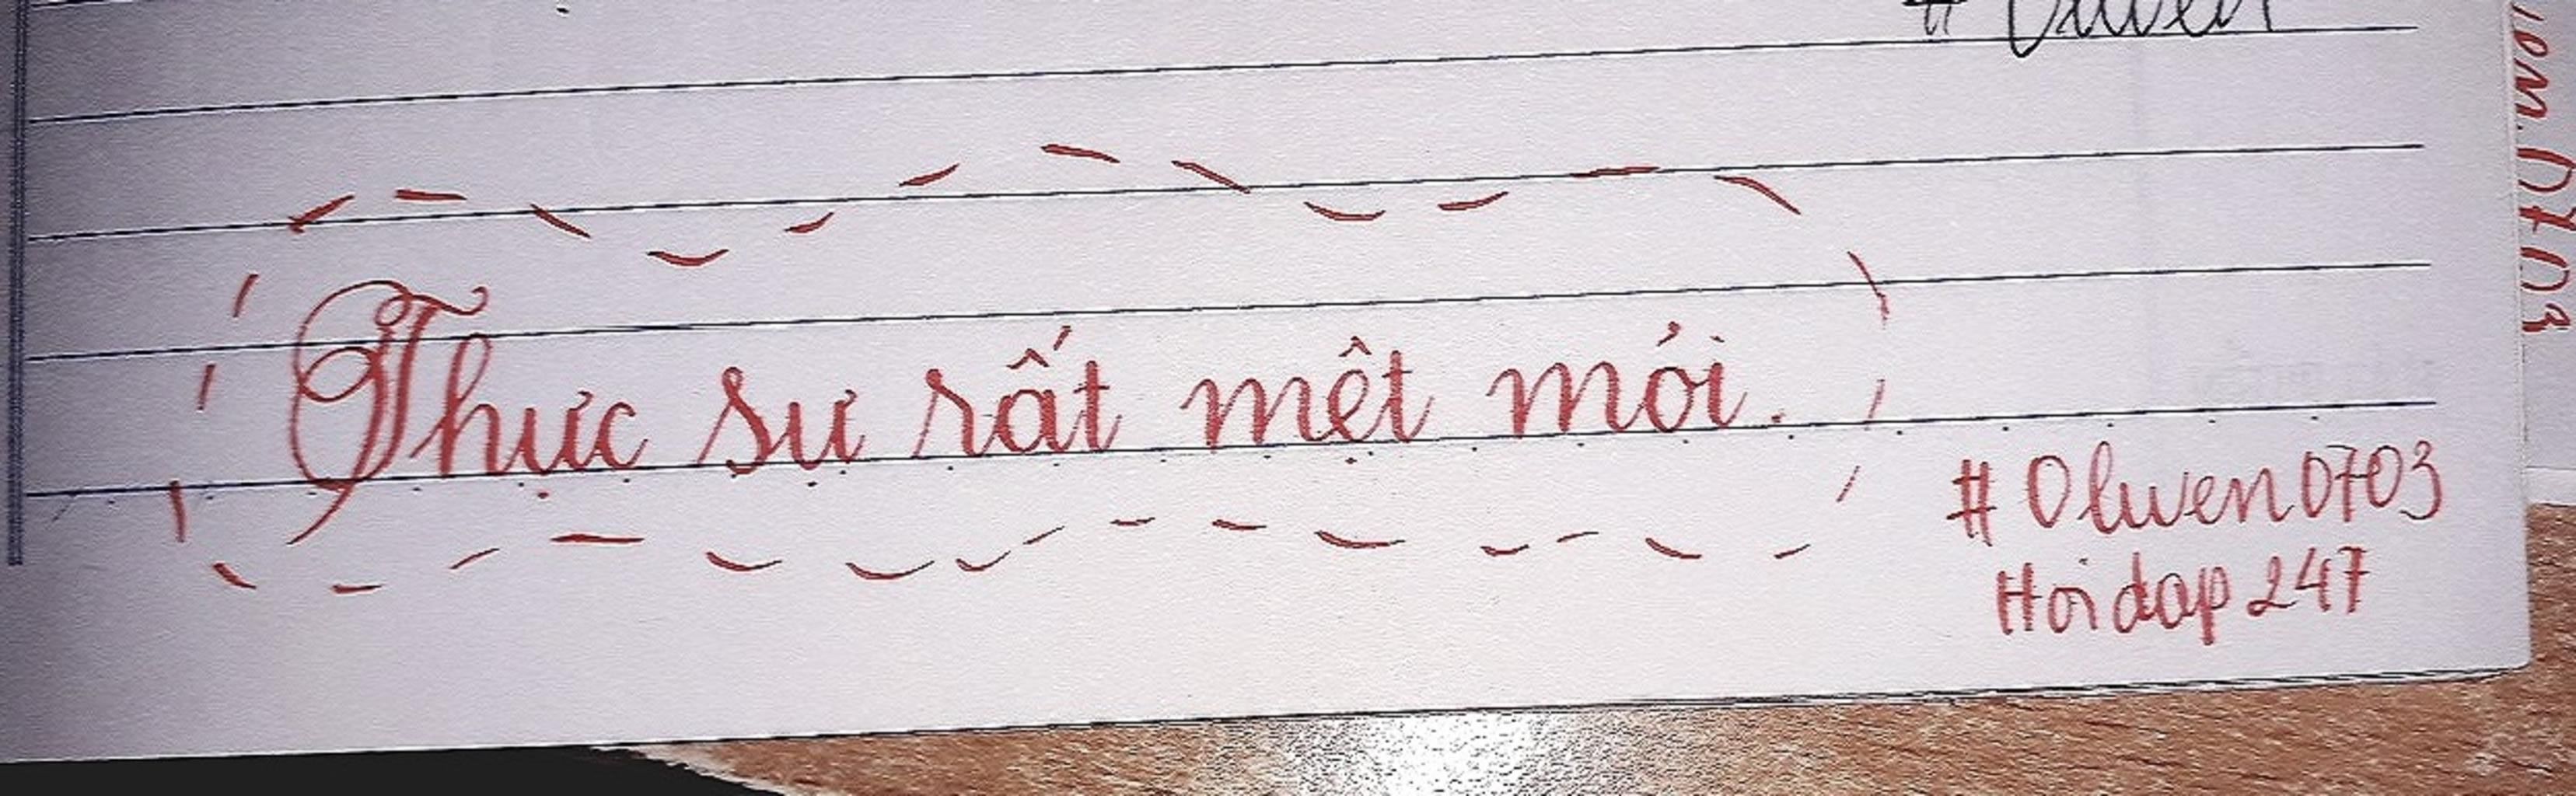 Thực sự rất mệt mỏi.
#Olwen0703
Hoidap247